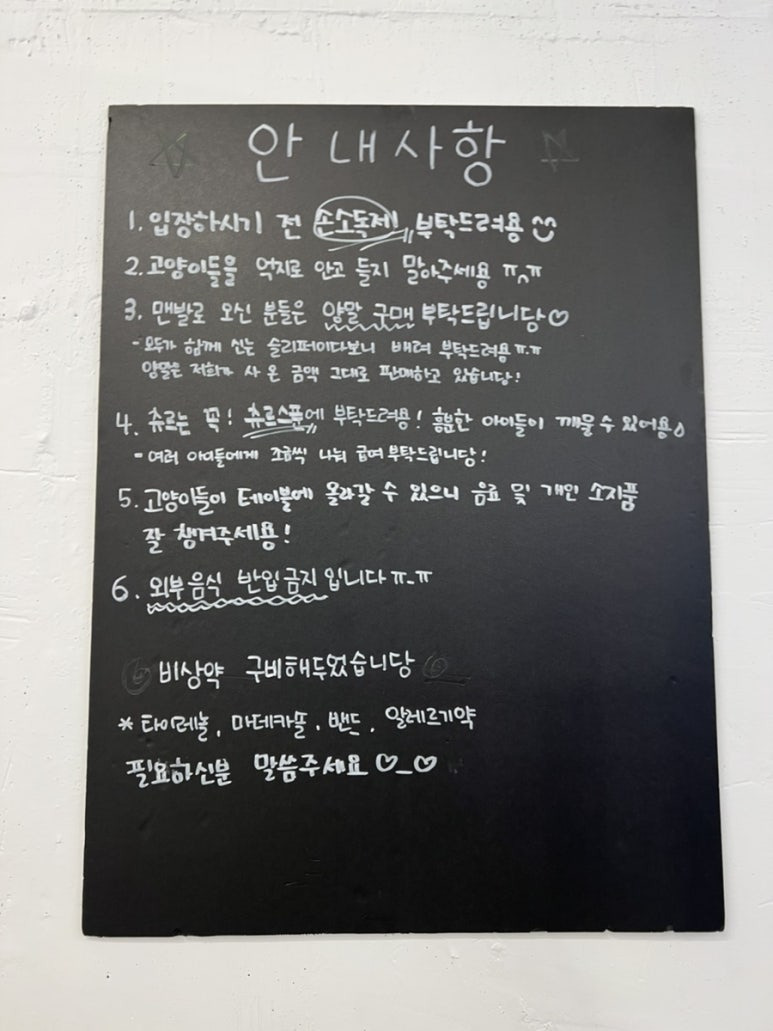 안내사항
1. 입장하시기 전 손소독제 부탁드려용
2. 고양이들을 억지로 안고 들지 말아주세용 ㅠ^ㅠ
3. 맨발로 오신 분들은 양말 구매 부탁드립니당♡
- 모두가 함께 신는 슬리퍼이다보니 배려 부탁드려용ㅠ.ㅠ
양말은 저희가 사 온 금액 그대로 판매하고 있습니당!
4. 츄르는 꼭! 츄르스푼에 부탁드려용! 흥분한 아이들이 깨물 수 있어용
- 여러 아이들에게 조금씩 나눠 급여 부탁드립니당!
5. 고양이들이 테이블에 올라갈 수 있으니 음료 및 개인 소지품
잘 챙겨주세용!
6. 외부음식 반입금지입니다ㅠ-ㅠ
비상약 구비해두었습니당
* 타이레놀, 마데카솔, 밴드, 알레르기약
필요하신분 말씀주세요 ♡_♡